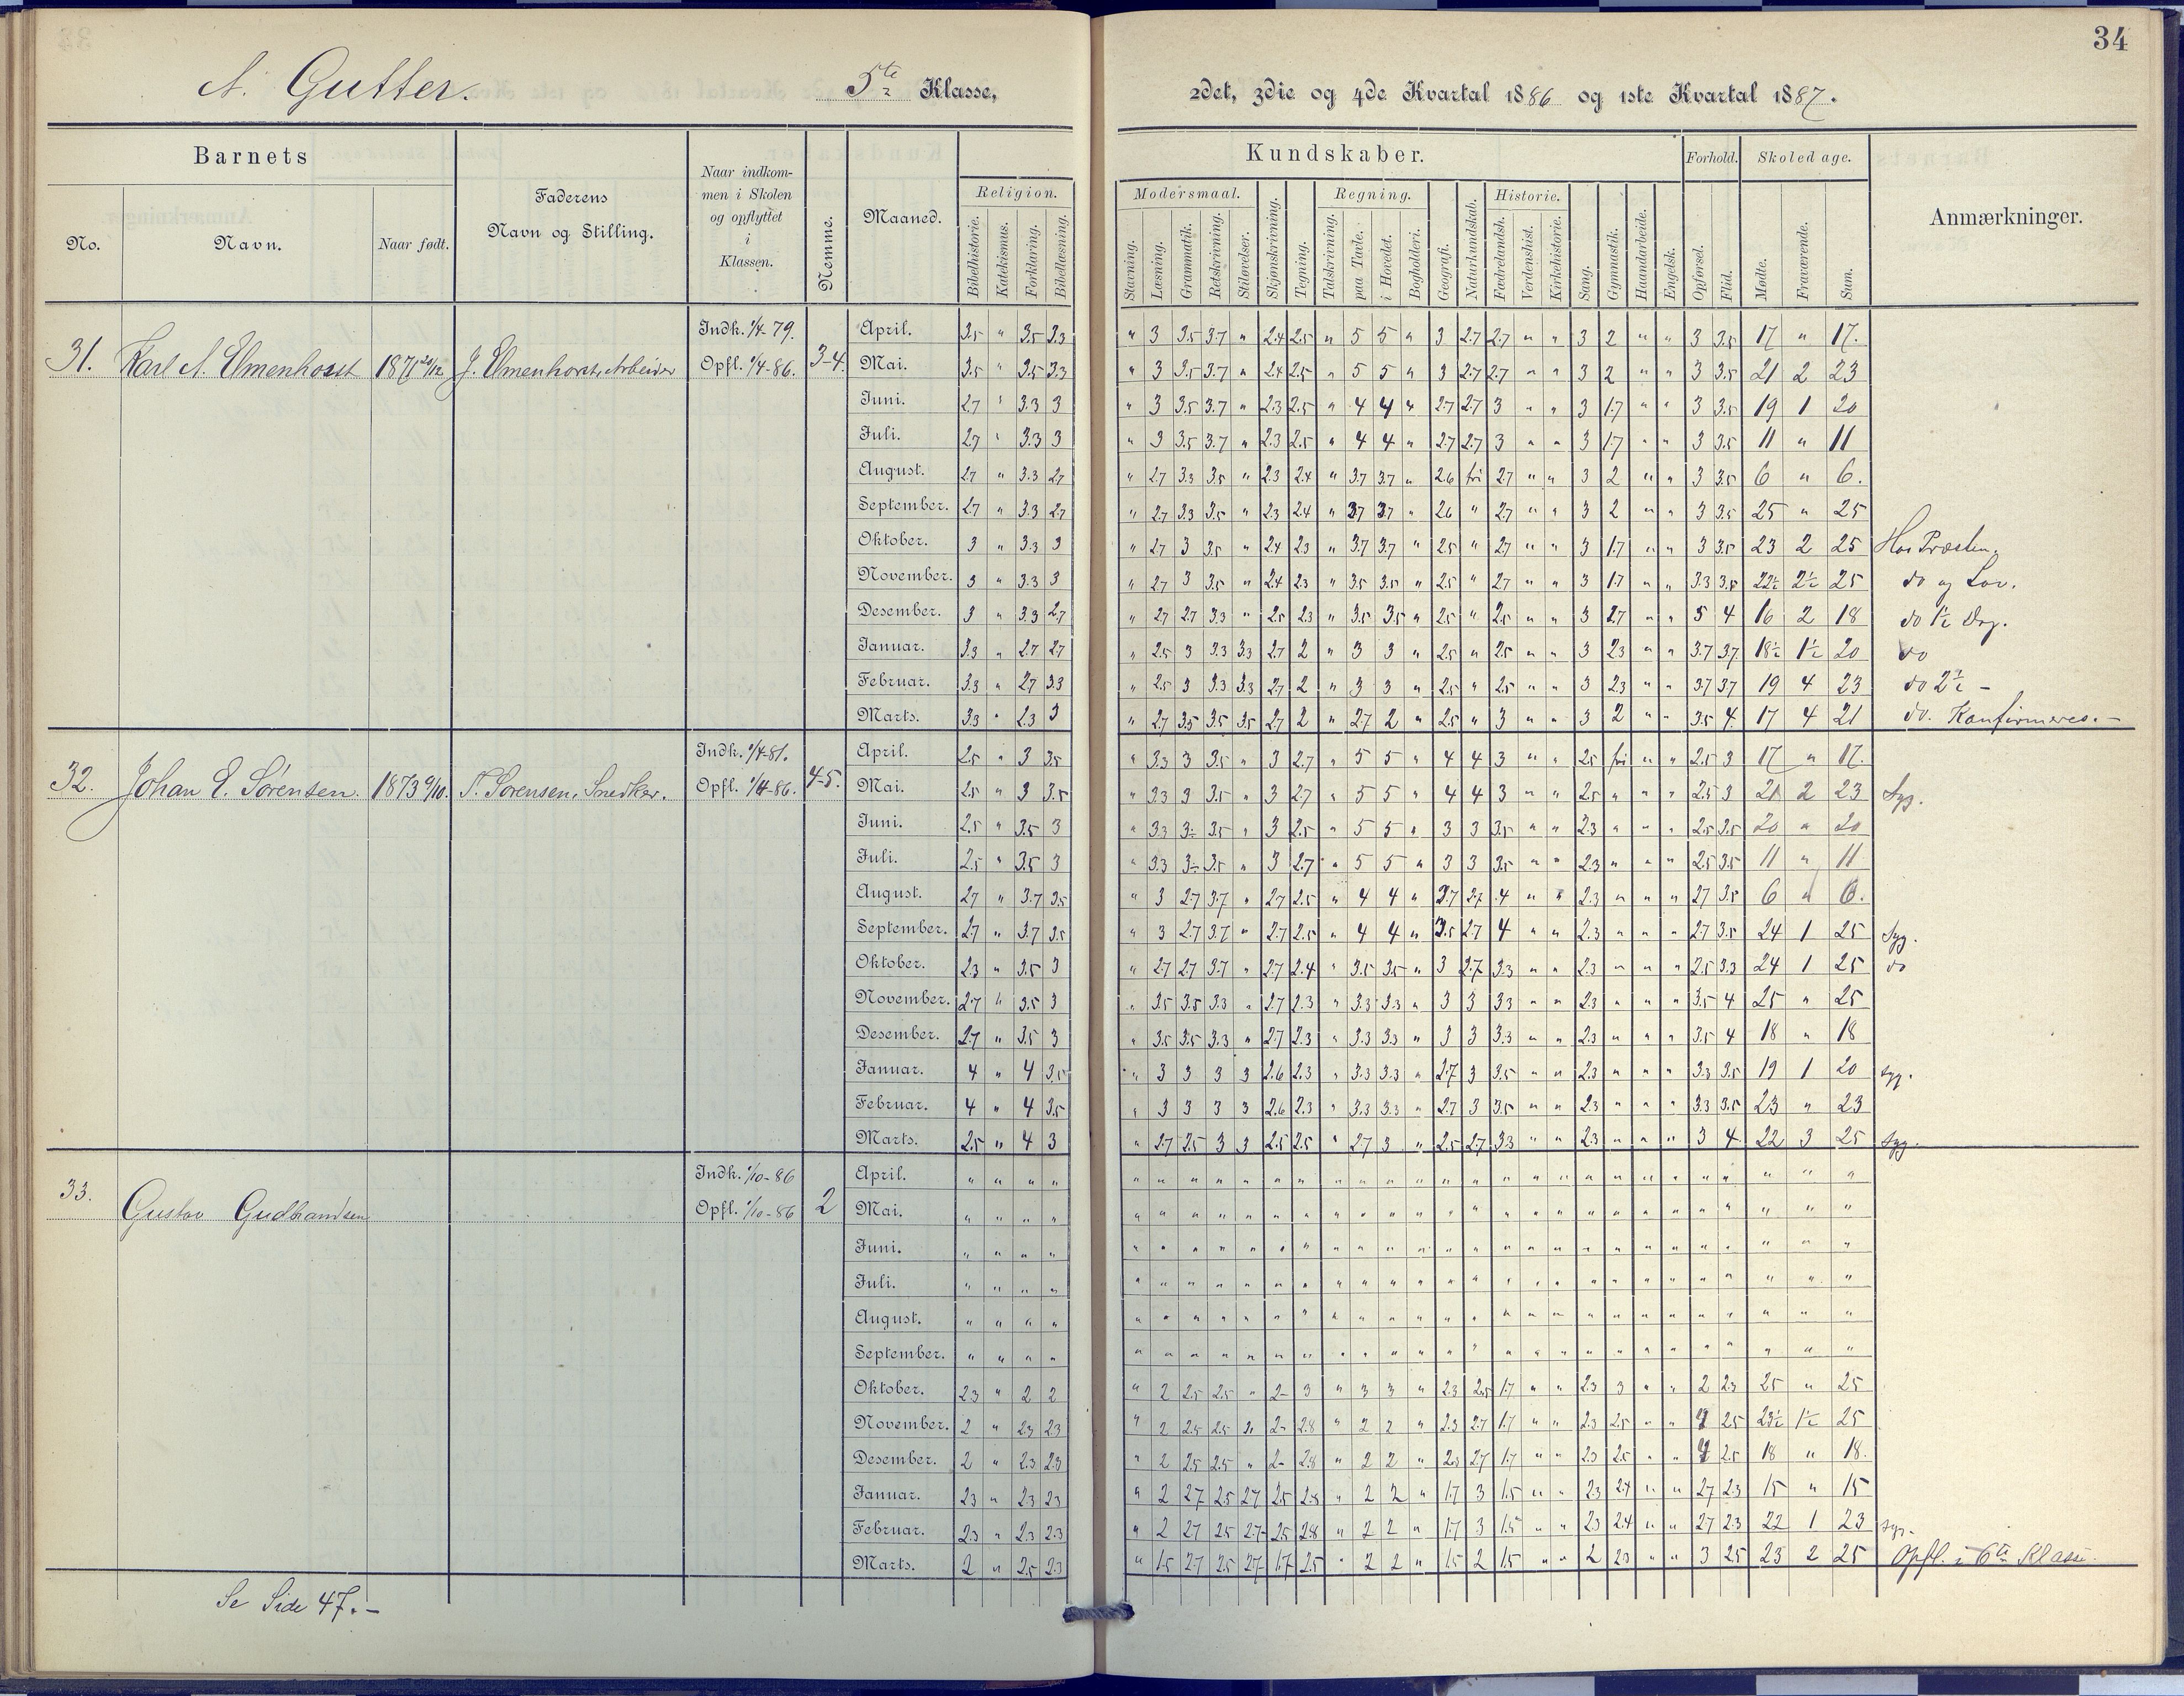 34
A. Gutter. 5te Klasse, 2det, 3die og 4de Kvartal 1886 og 1ste Kvartal 1887.
Barnets Kundskaber. Forhold. Skoledage.
No. Navn. Naar født. Faderens Navn og Stilling. Naar indkommen i Skolen og opflyttet i Klassen. Nemme. Maaned. Religion. Modersmaal. Regning. Historie. Anmærkninger.
Bibelhistorie. Katekismus. Forklaring. Bibellæsning. Stavning. Læsning. Grammatik. Retskrivning. Stiløvelser. Skjønskrivning. Tegning. Talskrivning. paa Tavle. i Hovedet. Bogholderi. Geografi. Naturkundskab. Fædrelandsh. Verdenshist. Kirkehistorie. Sang. Gymnastik. Haandarbeide. Engelsk. Opførsel. Flid. Mødte. Fraværende. Sum.
31. Karl A. Elmenhorst 1871 J. Elmenhorst, Arbeider Indk. 1/4 79. Opfl. 1/4-86. 3-4.
April. 3.5 " 3.5 3.3 " 3 3.5 3.7 " 2.4 2.5 " 5 5 " 3 2.7 2.7 " " 3 2 " " 3 3.5 17 " 17.
Mai. 3.5 " 3.5 3.3 " 3 3.5 3.7 " 2.4 2.5 " 5 5 " 3 2.7 2.7 " " 3 2 " " 3 3.5 21 2 23
Juni. 2.7 " 3.3 3 " 3 3.5 3.7 " 2.3 2.5 " 4 4 " 2.7 2.7 3 " " 3 1.7 " " 3 3.5 19 1 20
Juli. 2.7 " 3.3 3 " 3 3.5 3.7 " 2.3 2.5 " 4 4 " 2.7 2.7 3 " " 3 1.7 " " 3 3.5 11 " 11
August. 2.7 " 3.3 2.7 " 2.7 3.3 3.5 " 2.3 2.4 " 3.7 3.7 " 2.6 fri 2.7 " " 3 2 " " 3 3.5 6 " 6.
September. 2.7 " 3.3 2.7 " 2.7 3.3 3.5 " 2.3 2.4 " 3.7 3.7 " 2.6 " 2.7 " " 3 2 " " 3 3.5 25 " 25
Oktober. 3 " 3.3 3 " 2.7 3 3.5 " 2.4 2.3 " 3.7 3.7 " 2.5 " 2.7 " " 3 1.7 " " 3 3.5 23 2 25 Hos Præsten.
November. 3 " 3.3 3 " 2.7 3 3.5 " 2.4 2.3 " 3.5 3.5 " 2.5 " 2.7 " " 3 1.7 " " 3.3 3.5 22½ 2½ 25 do og Lov.
Desember. 3 " 3.3 2.7 " 2.7 2.7 3.3 " 2.5 2.3 " 3.5 3.5 " 2.5 " 2.5 " " 3 2.7 " " 5 4 16 2 18 do 1½ Dag.
Januar. 3.3 " 2.7 2.7 " 2.5 3 3.3 3.3 2.7 2 " 3 3 " 2.5 " 2.5 " " 3 2.3 " " 3.7 3.7 18½ 1½ 20 do
Februar. 3.3 " 2.7 3.3 " 2.5 3 3.3 3.3 2.7 2 " 3 3 " 2.5 " 2.5 " " 3 2.3 " " 3.7 3.7 19 4 23 do 2½ -
Marts. 3.3 " 2.3 3 " 2.7 3.5 3.5 3.5 2.7 2 " 2.7 2 " 2.5 " 3 " " 3 2 " " 3.5 4 17 4 21 do. Konfirmeres. -
32. Johan E. Sørensen. 1873 S. Sørensen, Snedker. Indk. 1/4-81. Opfl. 1/4-86. 4-5.
April. 2.5 " 3 3.5 " 3.3 3 3.5 " 3 2.7 " 5 5 " 4 4 3 " " 2.5 fri " " 2.5 3 17 " 17.
Mai. 2.5 " 3 3.5 " 3.3 3 3.5 " 3 2.7 " 5 5 " 4 4 3 " " 2.5 " " " 2.5 3 21 2 23 Syg.
Juni. 2.5 " 3.5 3 " 3.3 3- 3.5 " 3 2.5 " 5 5 " 3 3 3.5 " " 2.3 " " " 2.5 3.5 20 " 20
Juli. 2.5 " 3.5 3 " 3.3 3- 3.5 " 3 2.7 " 5 5 " 3 3 3.5 " " 2.3 " " " 2.5 3.5 11 " 11
August. 2.7 " 3.7 3.5 " 3 2.7 3.7 " 2.7 2.5 " 4 4 " 3.7 2.7 4 " " 2.3 " " " 2.7 3.5 6 " 6.
September. 2.7 " 3.7 3.5 " 3 2.7 3.7 " 2.7 2.5 " 4 4 " 3.5 2.7 4 " " 2.3 " " " 2.7 3.5 24 1 25 Syg.
Oktober. 2.3 " 3.5 3 " 2.7 2.7 3.7 " 2.7 2.4 " 3.5 3.5 " 3 2.7 3.3 " " 2.3 " " " 2.5 3.3 24 1 25 do
November. 2.7 " 3.5 3 " 3.5 3.5 3.3 " 2.7 2.3 " 3.3 3.3 " 3 3 3.3 " " 2.3 " " " 3.5 4 25 " 25
Desember. 2.7 " 3.5 3 " 3.5 3.5 3.3 " 2.7 2.3 " 3.3 3.3 " 3 3 3.3 " " 2.3 " " " 3.5 4 18 " 18
Januar. 4 " 4 3.5 " 3 3 3 3 2.6 2.3 " 3.3 3.3 " 2.7 3 3.5 " " 2.3 " " " 3.3 3.5 19 1 20 syg.
Februar. 4 " 4 3.5 " 3 3 3 3 2.6 2.3 " 3.3 3.3 " 2.7 3 3.5 " " 2.3 " " " 3.3 3.5 23 " 23
Marts. 2.5 " 4 3 " 2.7 2.5 3 3 2.5 2.5 " 2.7 3 " 2.5 2.7 3.3 " " 2.3 " " " 3 4 22 3 25 syg.
33. Gustav Gudbrandsen Indk. 1/10-86 Opfl. 1/10-86 2
April. " " " " " " " " " " " " " " " " " " " " " " " " " " " " "
Mai. " " " " " " " " " " " " " " " " " " " " " " " " " " " " "
Juni. " " " " " " " " " " " " " " " " " " " " " " " " " " " " "
Juli. " " " " " " " " " " " " " " " " " " " " " " " " " " " " "
August. " " " " " " " " " " " " " " " " " " " " " " " " " " " " "
September. " " " " " " " " " " " " " " " " " " " " " " " " " " " " "
Oktober. 2.3 " 2 2 " 2 2.5 2.5 " 2- 3 " 3 3 " 2.3 2.5 1.7 " " 2.3 3 " " 2 2.3 25 " 25
November. 2 " 2.3 2.3 " 2 2.5 2.5 " 2- 2.8 " 2 2 " 2.3 2.7 1.7 " " 2.3 2.5 " " 2.5 23½ 1½ 25
Desember. 2 " 2.3 2.3 " 2 2.5 2.5 " 2- 2.8 " 2 2 " 2.3 2.7 1.7 " " 2.3 2.5 " " 2.5 18 " 18.
Januar. 2.3 " 2.3 2.3 " 2 2.7 2.5 2.7 2.5 2.8 " 2 2 " 1.7 3 1.5 " " 2.3 2.4 " " 2.7 2.3 15 " 15
Februar. 2.3 " 2.3 2.3 " 2 2.7 2.5 2.7- 2.5 2.8 " 2 2 " 1.7 3 1.5 " " 2.3 2.4 " " 2.7 2.3 22 1 23 syg.
Marts. 2 " 2.5 2.3 " 1.5 2.7 2.5 2.7- 1.7 2.5 " 2 2 " 1.5 2 1.5 " " 2 2.3 " " 3 2.5 23 2 25 Opfl. i 6te Klasse.
Se Side 47. -